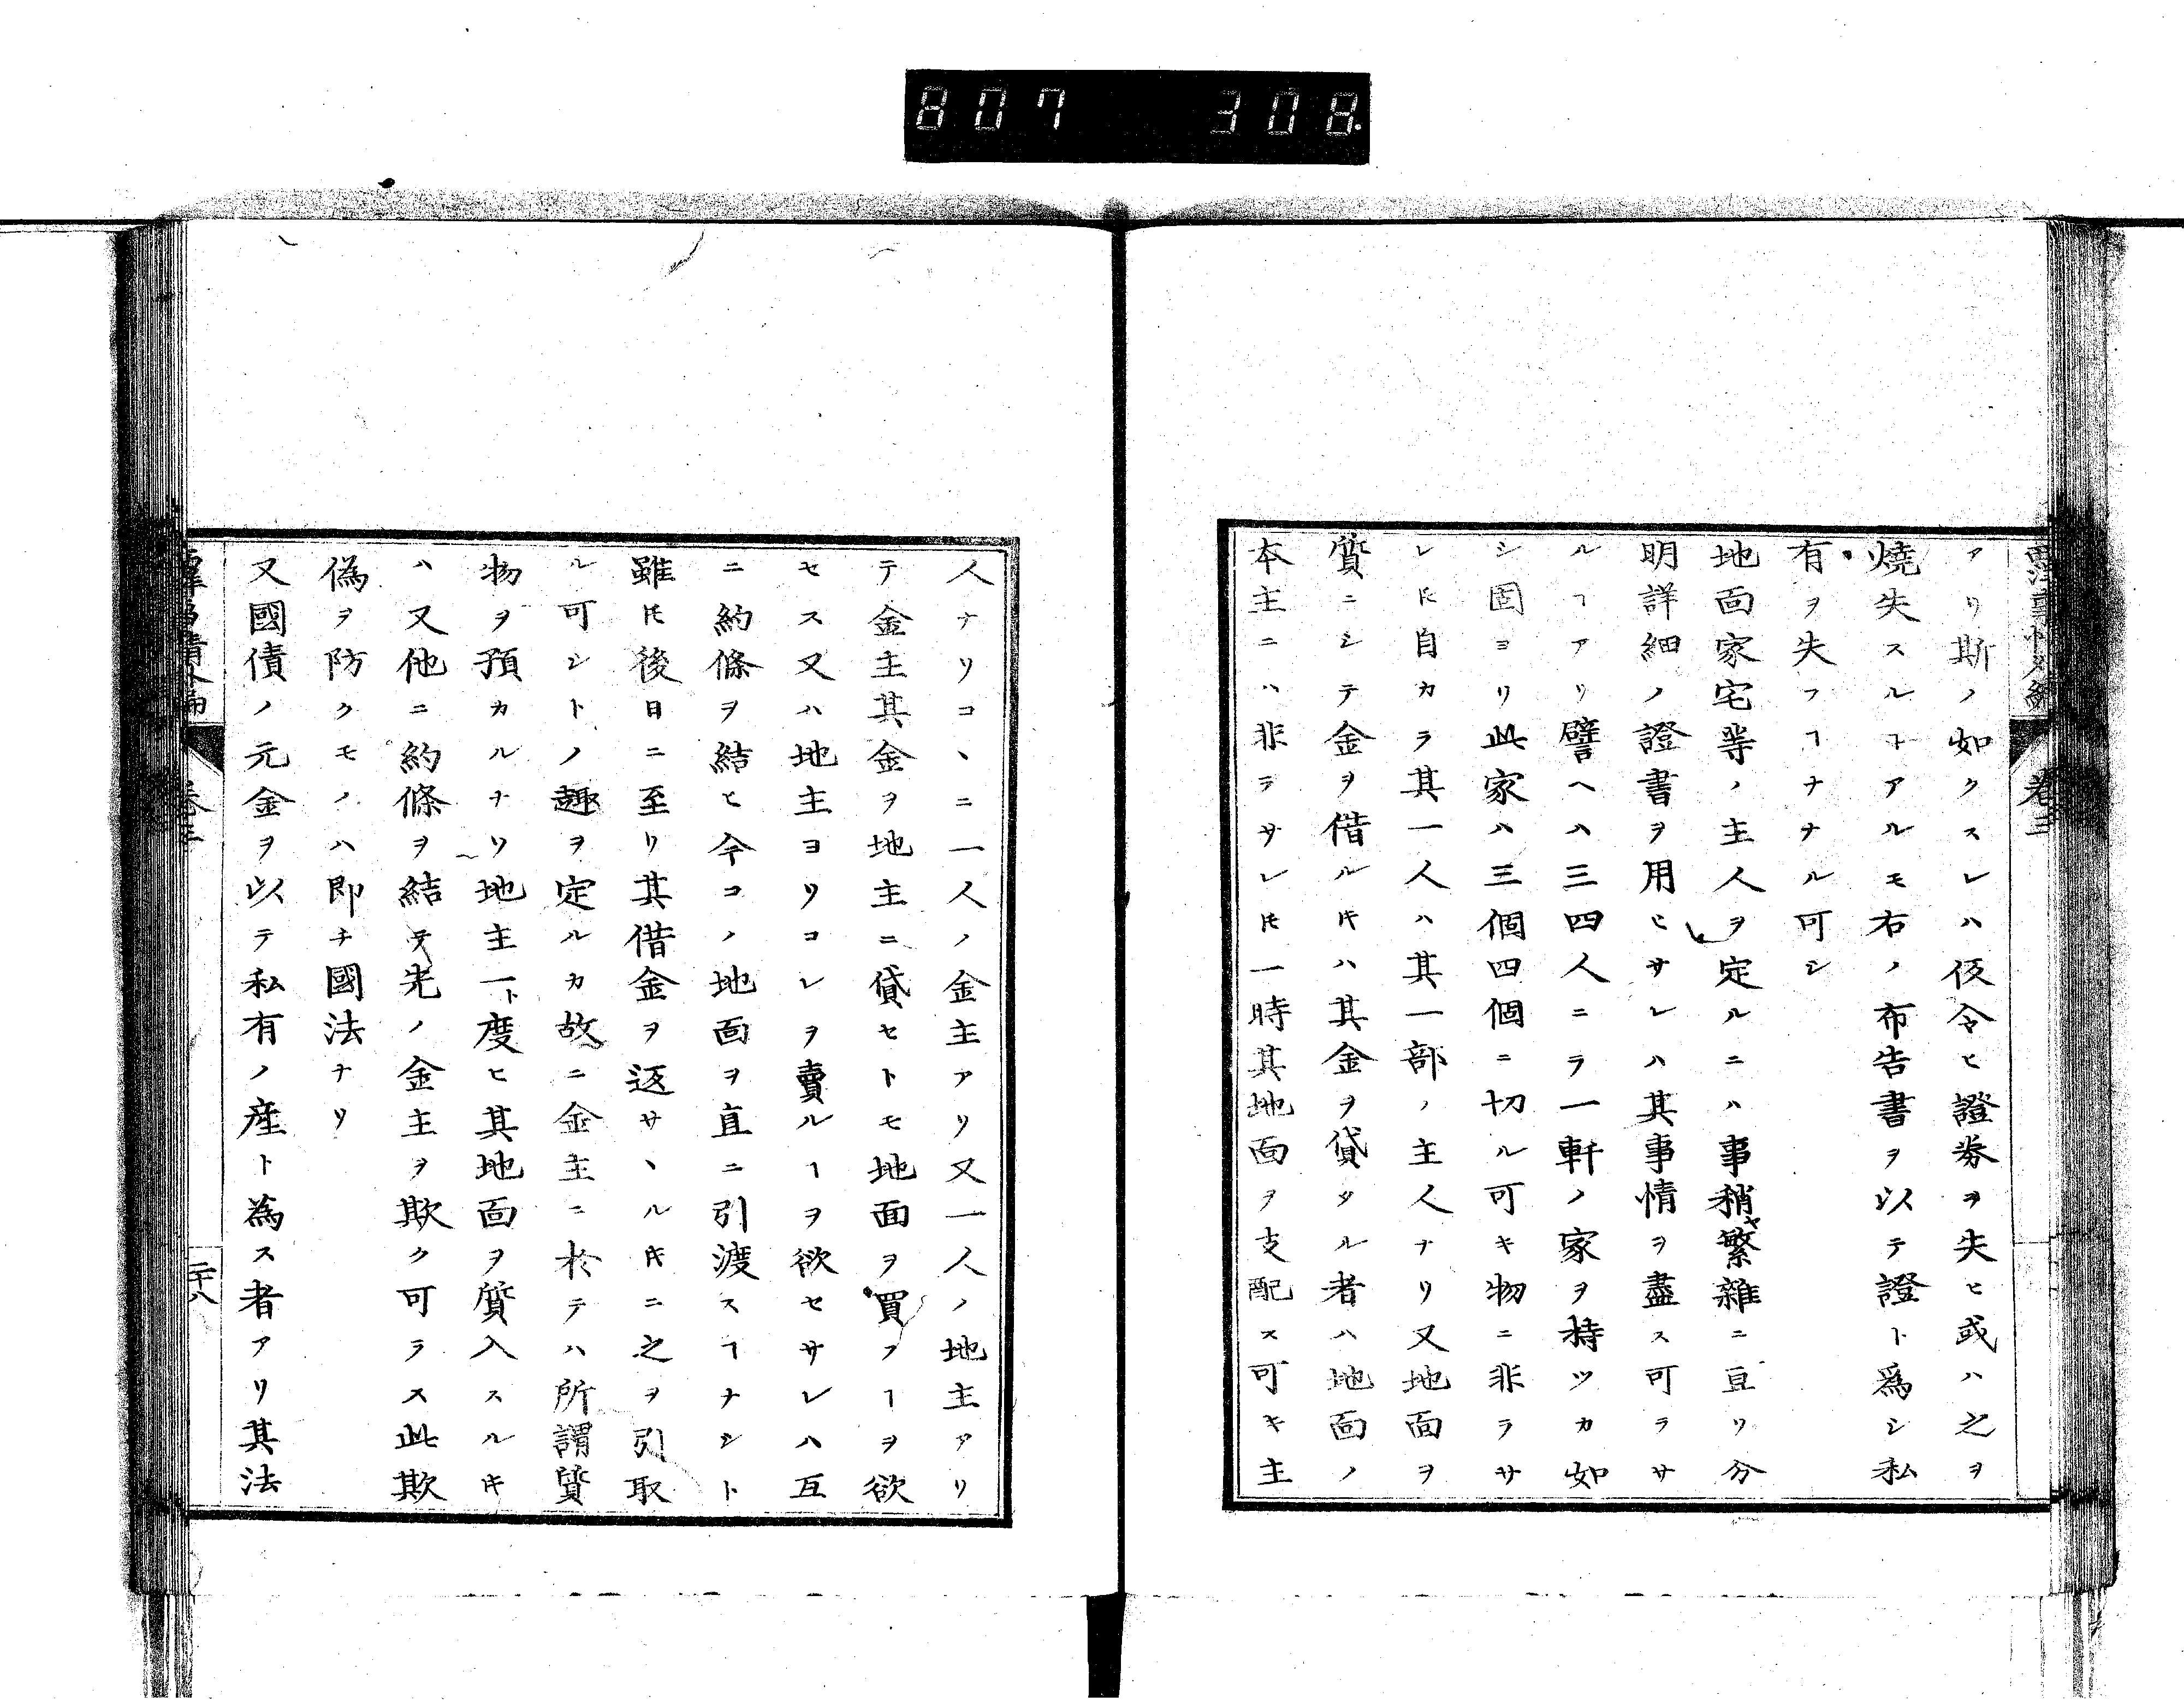 807 308.
西洋事情外編 巻三
アリ斯ノ如クスレハ仮令ヒ證券ヲ失ヒ或ハ之ヲ
燒失スルヿアルモ右ノ布告書ヲ以テ證ト爲シ私
有ヲ失フヿナナル可シ
地面家宅等ノ主人ヲ定ルニハ事稍ヤ繁雜ニ亘リ分
明詳細ノ證書ヲ用ヒサレハ其事情ヲ盡ス可ラサ
ルヿアリ譬ヘハ三四人ニテ一軒ノ家ヲ持ツカ如
シ固ヨリ此家ハ三個四個ニ切ル可キ物ニ非ラサ
レ𪜈自カラ其一人ハ其一部ノ主人ナリ又地面ヲ
質ニシテ金ヲ借ルキハ其金ヲ貸タル者ハ地面ノ
本主ニハ非ラサレ𪜈一時其地面ヲ支配ス可キ主
人ナリコヽニ一人ノ金主アリ又一人ノ地主アリ
テ金主其金ヲ地主ニ貸セトモ地面ヲ買フヿヲ欲
セス又ハ地主ヨリコレヲ賣ルヿヲ欲セサレハ互
ニ約條ヲ結ヒ今コノ地面ヲ直ニ引渡スヿナシト
雖𪜈後日ニ至リ其借金ヲ返サヽルキニ之ヲ引取
ル可シトノ趣ヲ定ルカ故ニ金主ニ於テハ所謂質
物ヲ預カルナリ地主一ト度ヒ其地面ヲ質入スルキ
ハ又他ニ約條ヲ結テ先ノ金主ヲ欺ク可ラス此欺
偽ヲ防クモノハ即チ國法ナリ
又國債ノ元金ヲ以テ私有ノ産ト為ス者アリ其法
西洋事情外編 巻三 二十八